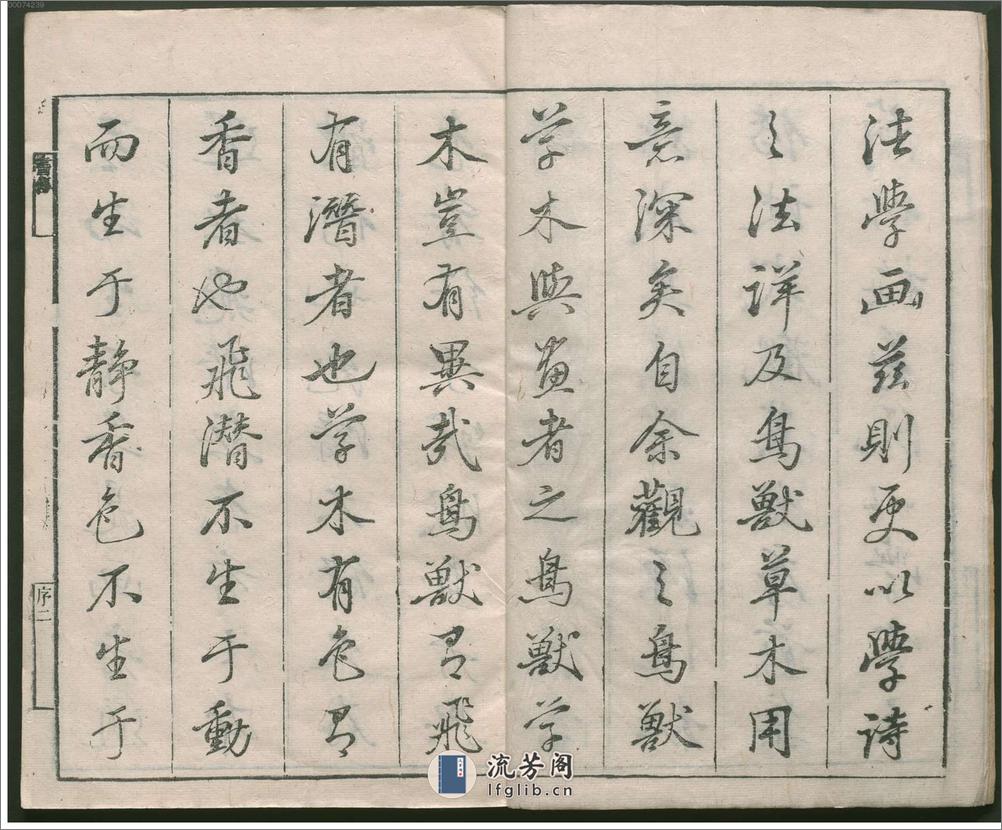 法學画茲則更以學詩
之法詳及鳥獸草木用
意深矣自余觀之鳥獸
学木與畫者之鳥獸学
木豈有異哉鳥獸有飛
有潛者也学木有色有
香者也飛潛不生于動
而生于靜香色不生于
序二
流芳阁
lfglib.cn
00074239